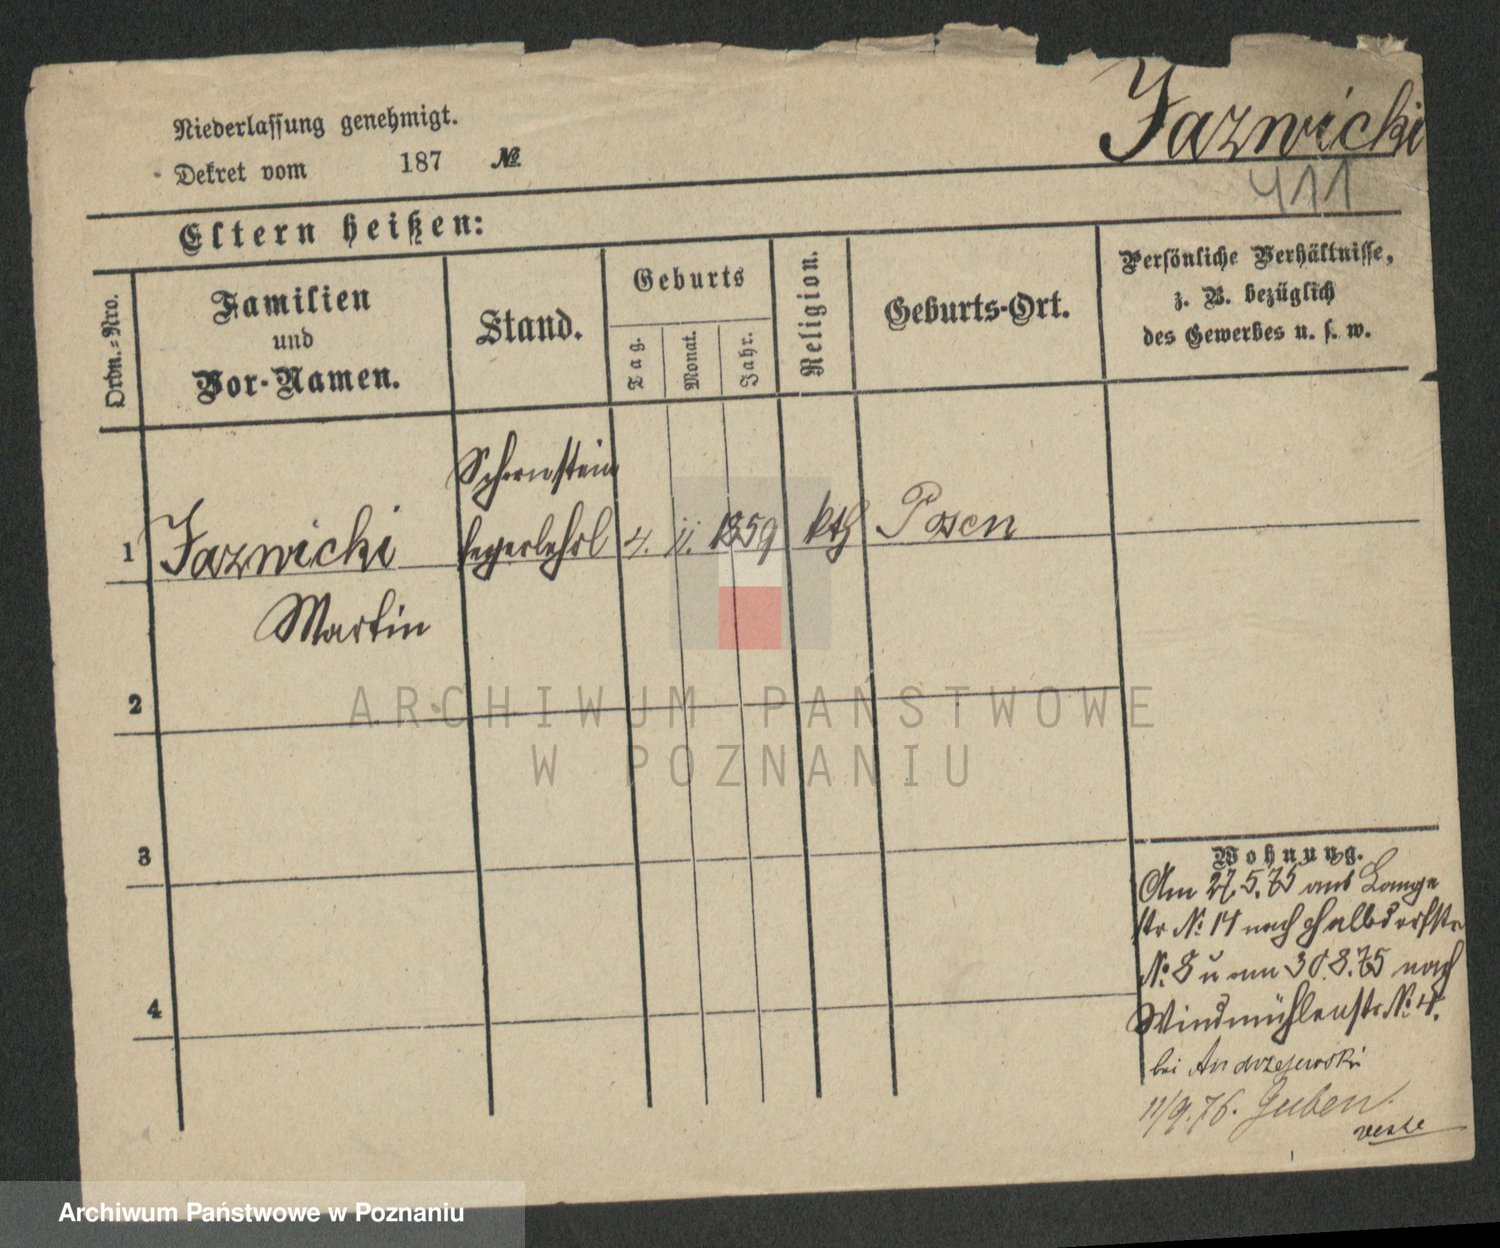 Niederlassung genehmigt.
Dekret vom 187 №
Jazwicki
411
Eltern heißen:
Ordn.=Nro.
Familien
und
Vor-Namen.
Stand.
Geburts
Tag.
Monat.
Jahr.
Religion.
Geburts-Ort.
Persönliche Verhältnisse,
z. B. bezüglich
des Gewerbes u. s. w.
Schornstein
1 Jazwicki fegerlehrl 4. 11. 1859 kth Posen
Martin
2
3
4
Wohnung.
Am 27.5.75 aus Lange
str № 14 nach Halbdorfstr
№ 8 u am 30.8.75 nach
Windmühlenstr № 4.
bei Andrzejewski
11/9.76. Guben.
ARCHIWUM PAŃSTWOWE
W POZNANIU
Archiwum Państwowe w Poznaniu